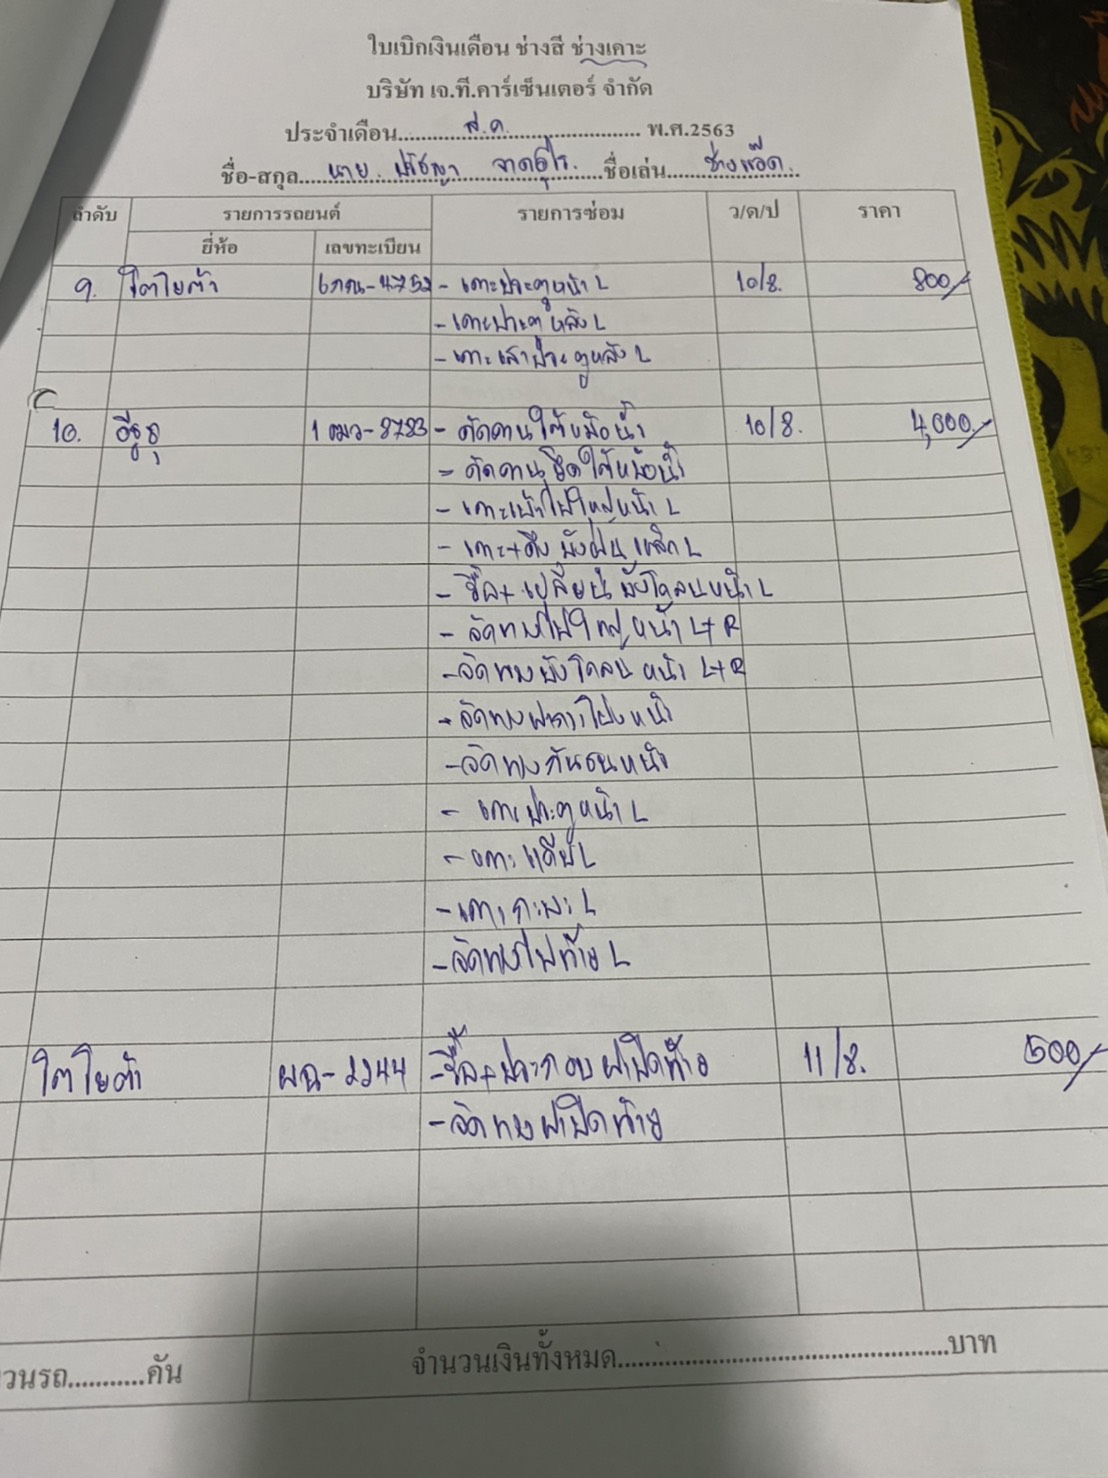 ใบเบิกเงินเดือน ช่างสี ช่างเคาะ
บริษัท เจ.ที.คาร์เซ็นเตอร์ จำกัด
ประจำเดือน.......ส.ค........ พ.ศ.2563
ชื่อ-สกุล....นาย ปรัชญา.......ชื่อเล่น.......ช่างแอ๊ด.
ลำดับ รายการรถยนต์ รายการซ่อม ว/ด/ป ราคา
ยี่ห้อ เลขทะเบียน
9. โตโยต้า 6กณ-4752 - เคาะประตูหน้า L 10/8. 800/-
- เคาะประตูหลัง L
- เคาะเสาประตูหลัง L
10. อีซูซุ 1ฒว-8783 - ดัดคานใต้หม้อน้ำ 10/8. 4,000.-
- ดัดคานยึดใต้หม้อน้ำ
- เคาะเบ้าไฟใหญ่หน้า L
- เคาะ+ดึง บังฝุ่น เหล็ก L
- รื้อ+เปลี่ยน บังโคลนหน้า L
- จัดทรงไฟใหญ่หน้า L+R
- จัดทรงบังโคลน หน้า L+R
- จัดทรงฝากระโปรงหน้า
- จัดทรงกันชนหน้า
- เคาะประตูหน้า L
- เคาะแค๊ป L
- เคาะกะบะ L
- จัดทรงไฟท้าย L
โตโยต้า ผฉ-2244 - รื้อ+ประกอบ ฝาปิดท้าย 11/8. 500/-
- จัดทรงฝาปิดท้าย
วนรถ...........คัน จำนวนเงินทั้งหมด...............................................บาท